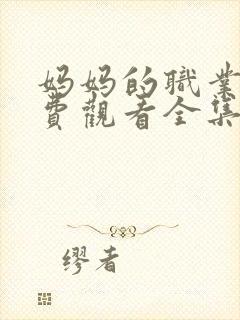 妈妈的職業
費觀看全集
缪者